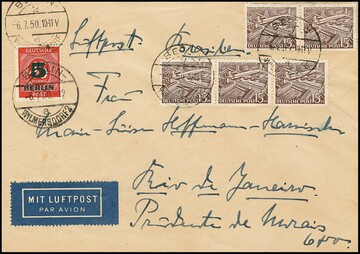 BERLIN-
-6.7.50.10-11V
DEUTSCHE POST
5
BERLIN
BERLIN-
WILMERSDORF 2
Luftpost
DEUTSCHE POST 15
DEUTSCHE POST 15
DEUTSCHE POST 15
DEUTSCHE POST 15
DEUTSCHE POST 15
Frau
Hoffmann-Harnisch
MIT LUFTPOST
PAR AVION
Rio de Janeiro
Prudente de Morais